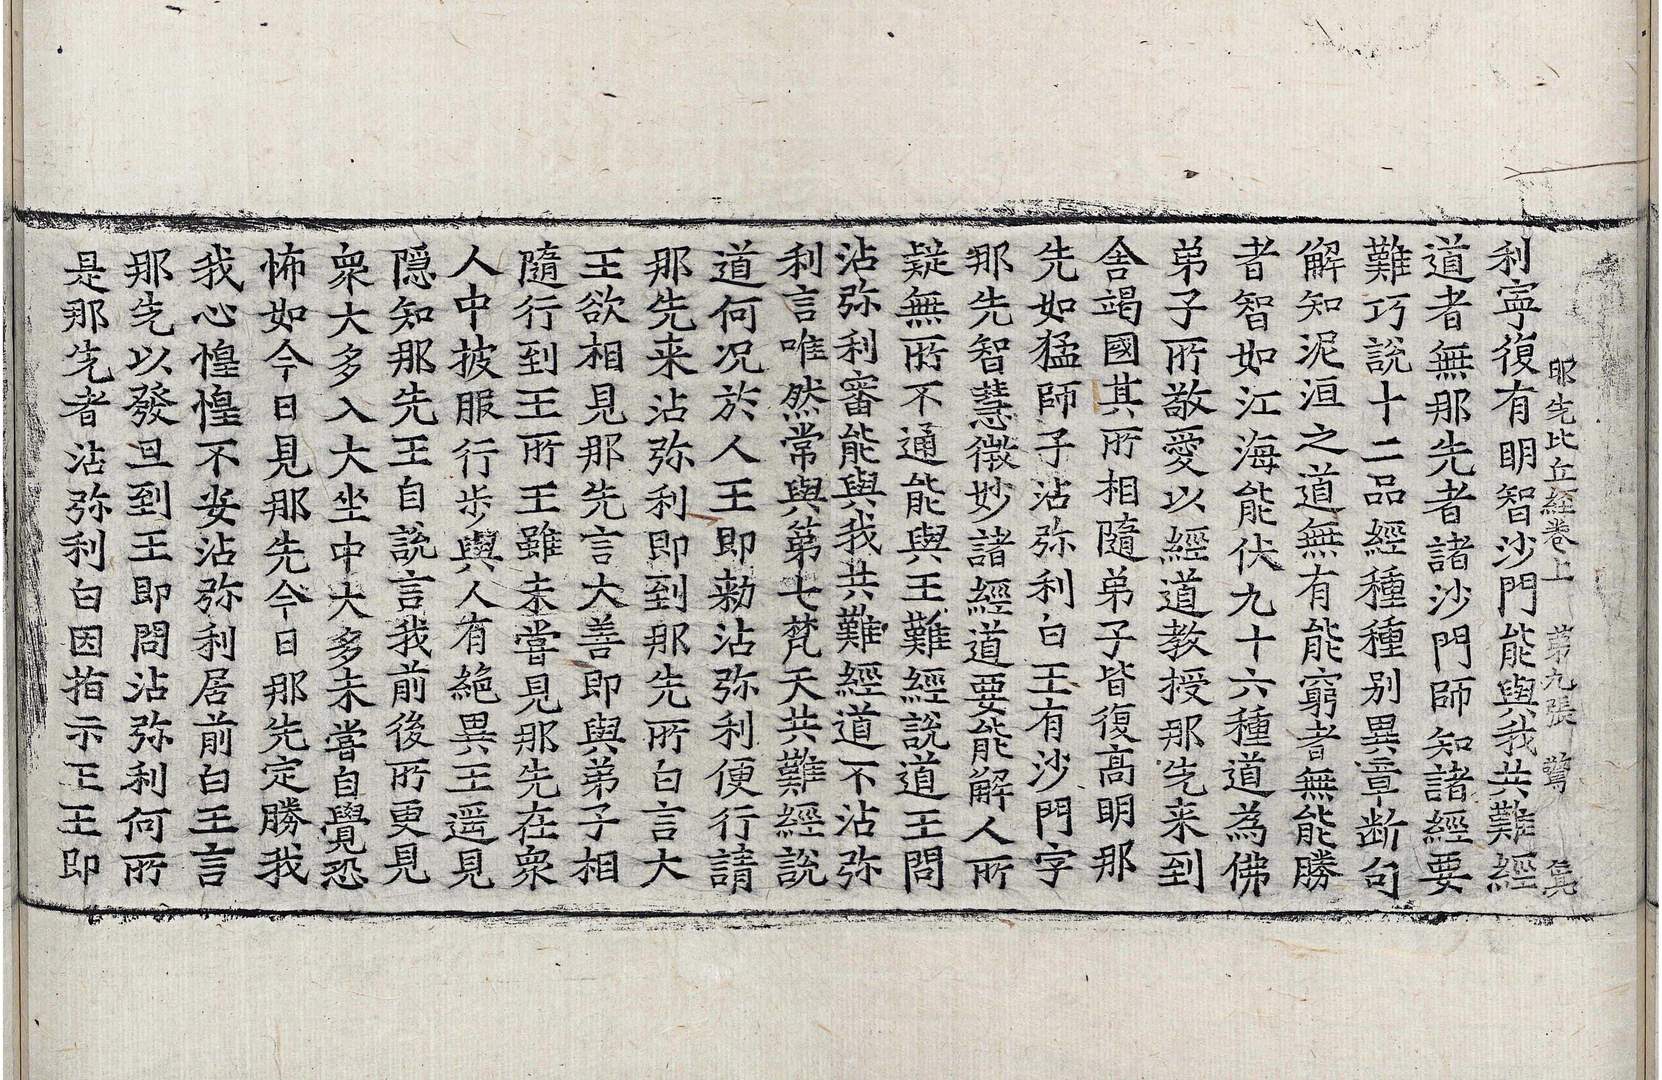 那先比丘經卷上 第九張 驚
利寧復有明智沙門能與我共難經
道者無那先者諸沙門師知諸經要
難巧說十二品經種種別異章断句
解知泥洹之道無有能窮者無能勝
者智如江海能伏九十六種道為佛
弟子所敬愛以經道教授那先来到
舎竭國其所相隨弟子皆復高明那
先如猛師子沾弥利白王有沙門字
那先智慧微妙諸經道要能解人所
疑無所不通能與王難經說道王問
沾弥利審能與我共難經道不沾弥
利言唯然常與第七梵天共難經說
道何況於人王即勑沾弥利便行請
那先来沾弥利即到那先所白言大
王欲相見那先言大善即與弟子相
隨行到王所王雖未嘗見那先在衆
人中披服行歩與人有絶異王遥見
隠知那先王自說言我前後所更見
衆大多入大坐中大多未嘗自覺恐
怖如今日見那先今日那先定勝我
我心惶惶不安沾弥利居前白王言
那先以發旦到王即問沾弥利何所
是那先者沾弥利白因指示王王即